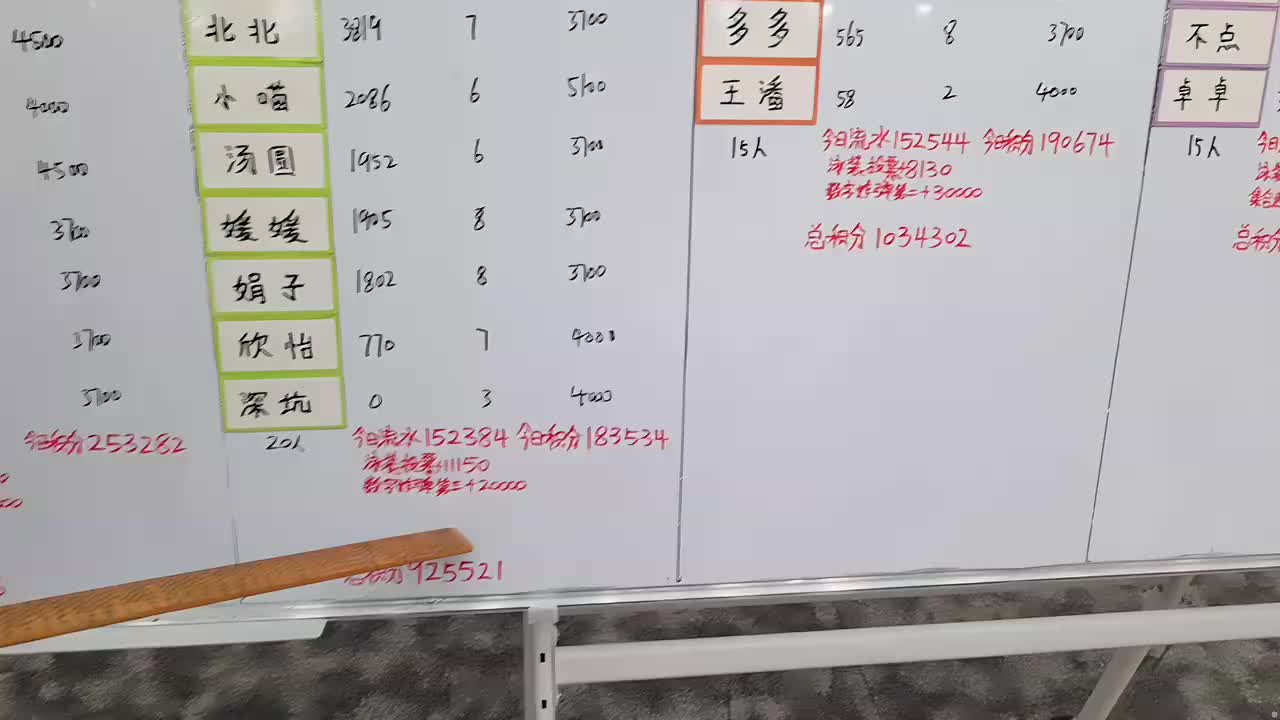 4500
4000
4500
3700
3700
3700
3700
今日积分253282
北北 3819 7 3700
小喵 2086 6 5100
汤圆 1952 6 3700
媛媛 1905 8 3700
娟子 1802 8 3700
欣怡 770 7 4000
深坑 0 3 4000
20人 今日流水152384 今日积分183534
泳装投票+11150
数字炸弹第二+20000
总积分925521
多多 565 8 3700
王潘 58 2 4000
15人 今日流水152544 今日积分190674
泳装投票+8130
数字炸弹第一+30000
总积分1034302
不点
卓卓
15人
总积分